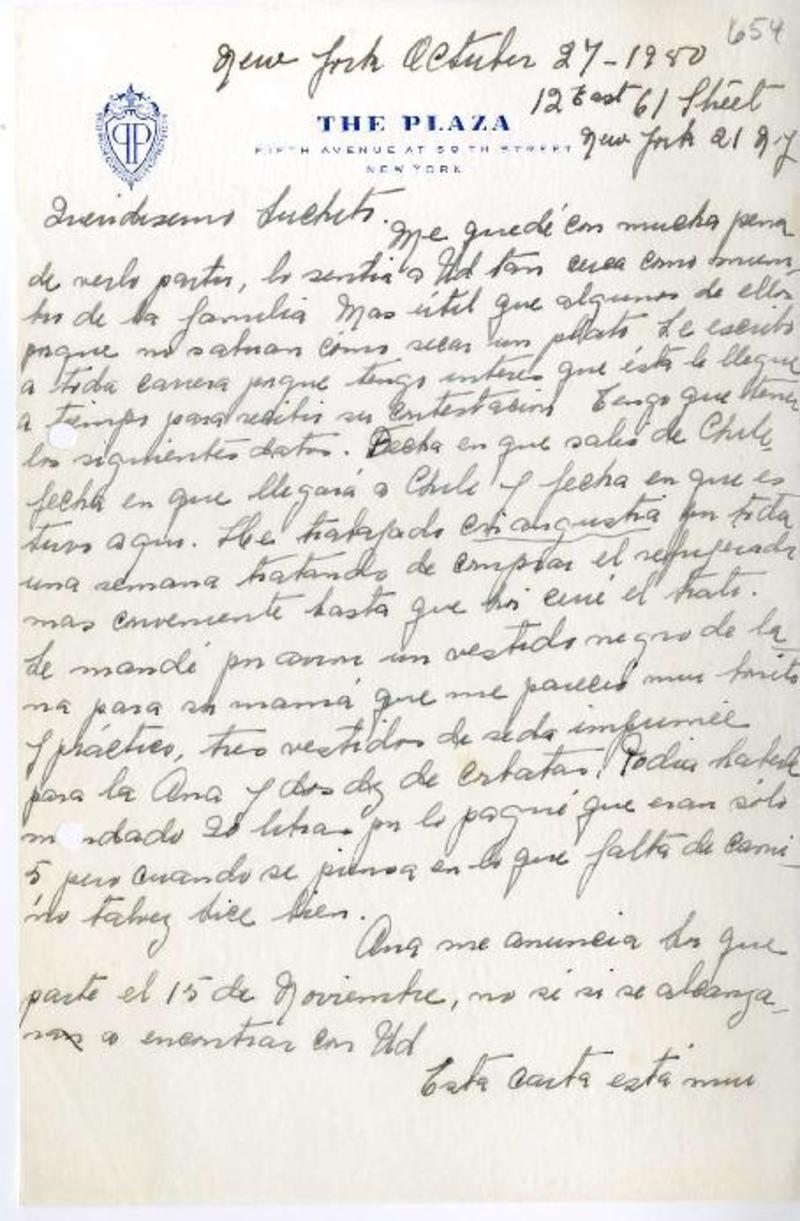 654
New York October 27-1950
12 East 61 Street
THE PLAZA
FIFTH AVENUE AT 59TH STREET
NEW YORK
New York 21 N.Y
Queridisimo Luchito.
Me quedé con mucha pena
de verlo partir, lo sentia a Ud tan cerca como miem-
bro de la familia Mas útil que algunos de ellos
porque no sabian cómo secar un plato Le escribo
a toda carrera porque tengo interés que ésta le llegue
a tiempo para recibir su contestacion Tengo que tener
los siguientes datos. Fecha en que salió de Chile,
fecha en que llegará a Chile y fecha en que es
tuvo aqui. He trabajado con angustia por toda
una semana tratando de comprar el refrigerador
mas conveniente hasta que hoi cerré el trato.
Le mandé por avion un vestido negro de la
na para su mamá que me pareció mui bonito
y práctico, tres vestidos de seda imprimée
para la Ana y dos de corbatas. Podia haberle
mandado 20 libras por lo pagué que eran sólo
5 pero cuando se piensa en lo que falta de cami-
no talvez hice bien.
Ana me anuncia hoi que
parte el 15 de Noviembre, no sé si se alcanza-
ran a encontrar con Ud
Esta carta está mui